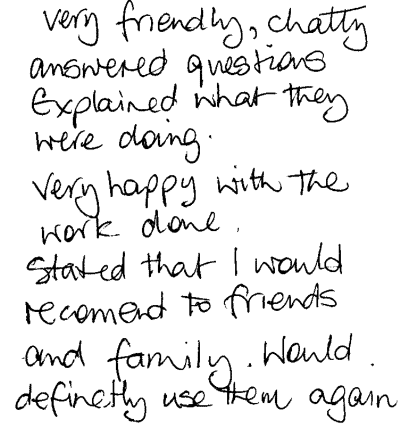 very friendly, chatty
answered questions
Explained what they
were doing.
very happy with the
work done.
stated that I would
recomend to friends
and family. Would.
definetly use them again